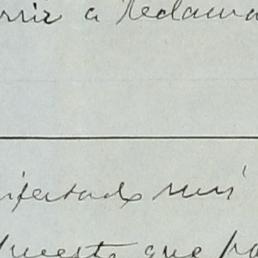 rrir a reclama
ifestado mui
puesto que pa